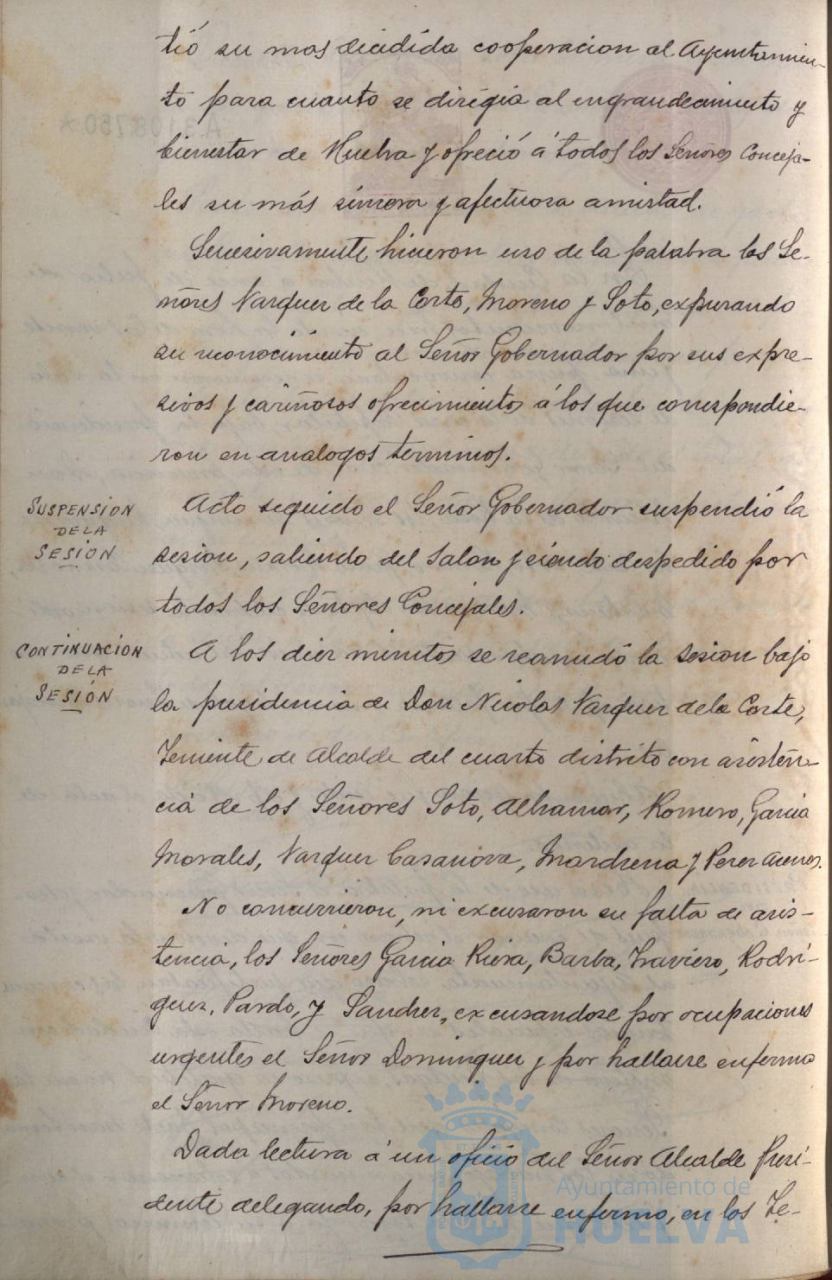 tió su mas decidida cooperacion al Ayuntamien-
to para cuanto se dirigia al engrandecimiento y
bienestar de Huelva y ofreció á todos los Señores Conceja-
les su más sincera y afectuosa amistad.
Sucesivamente hicieron uso de la palabra los Se-
ñores Vazquez de la Corte, Moreno y Soto, expresando
su reconocimiento al Señor Gobernador por sus expre-
sivos y cariñosos ofrecimientos á los que correspondie-
ron en analogos terminos.
SUSPENSIÓN
DE LA
SESIÓN
Acto seguido el Señor Gobernador suspendió la
sesion, saliendo del Salon y siendo despedido por
todos los Señores Concejales.
CONTINUACIÓN
DE LA
SESIÓN
A los diez minutos se reanudó la sesion bajo
la presidencia de Don Nicolas Vazquez de la Corte,
Teniente de Alcalde del cuarto distrito con asisten-
cia de los Señores Soto, Alhamar, Romero, Garcia
Morales, Vazquez Casanova, Mardrena y Perez
No concurrieron, ni excusaron su falta de asis-
tencia, los Señores Garcia Barba, Traviero, Rodri-
guez, Pardo, y Sanchez, excusandose por ocupaciones
urgentes el Señor Dominguez y por hallarse enfermo
el Señor Moreno.
Dada lectura á un oficio del Señor Alcalde Presi-
dente delegando, por hallarse enfermo, en los Te-
Ayuntamiento de
HUELVA